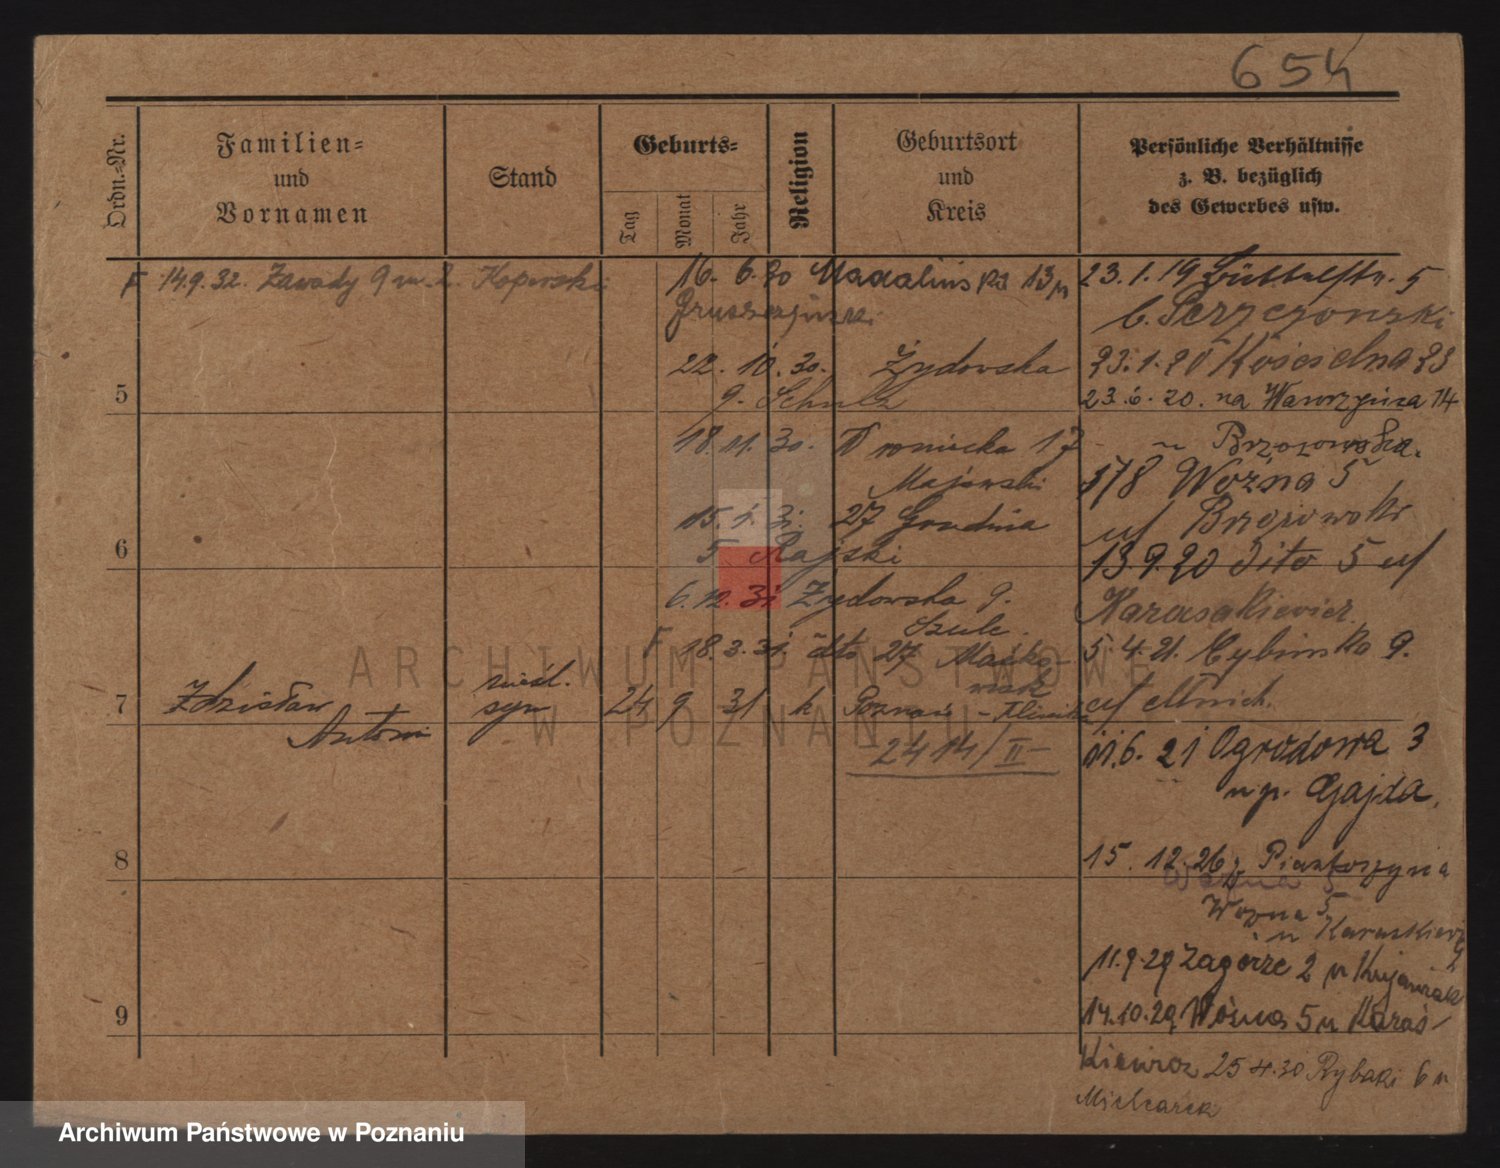 654
Ordn.-Nr.
Familien-
und
Vornamen
Stand
Geburts-
Tag
Monat
Jahr
Religion
Geburtsort
und
Kreis
Persönliche Verhältnisse
z. B. bezüglich
des Gewerbes usw.
F 14.9.32. Zawady 9 m. 2. Koperski
16. 6. 30
13
22. 10. 30. Żydowska
9. Schulz
18. 11. 30. Wroniecka 17
Majewski
27 Grudnia
5 Rajski
6. 12. 31 Żydowska 9.
Szulc.
F 18. 3. 31. dto 27
5
6
7 Zdzisław
Antoni
nieśl.
syn
24 9 31 k Poznań - Klinika
2414/II
8
9
23. 1. 19 Büttelstr. 5
23. 1. 20 Kościelna 23
23. 6. 20. na Wawrzyńca 14
u Brzozowska.
Woźna 5
u/ Brzozowski
13 9. 20 dito 5 u/
Karaśkiewicz
5. 4. 21. Cybińska 9.
11. 6. 21 Ogrodowa 3
u p. Gajda.
15. 12. 26 z Piaskoszyna
Woźna 5
Woźna 5
u Karaśkiewicz
11.9.29 Zagórze 2 u Kujawiak
14.10.29 Woźna 5 u Karaś-
kiewicz 25 4. 30 Rybaki 6 u
Mielcarek
ARCHIWUM PAŃSTWOWE
W POZNANIU
Archiwum Państwowe w Poznaniu